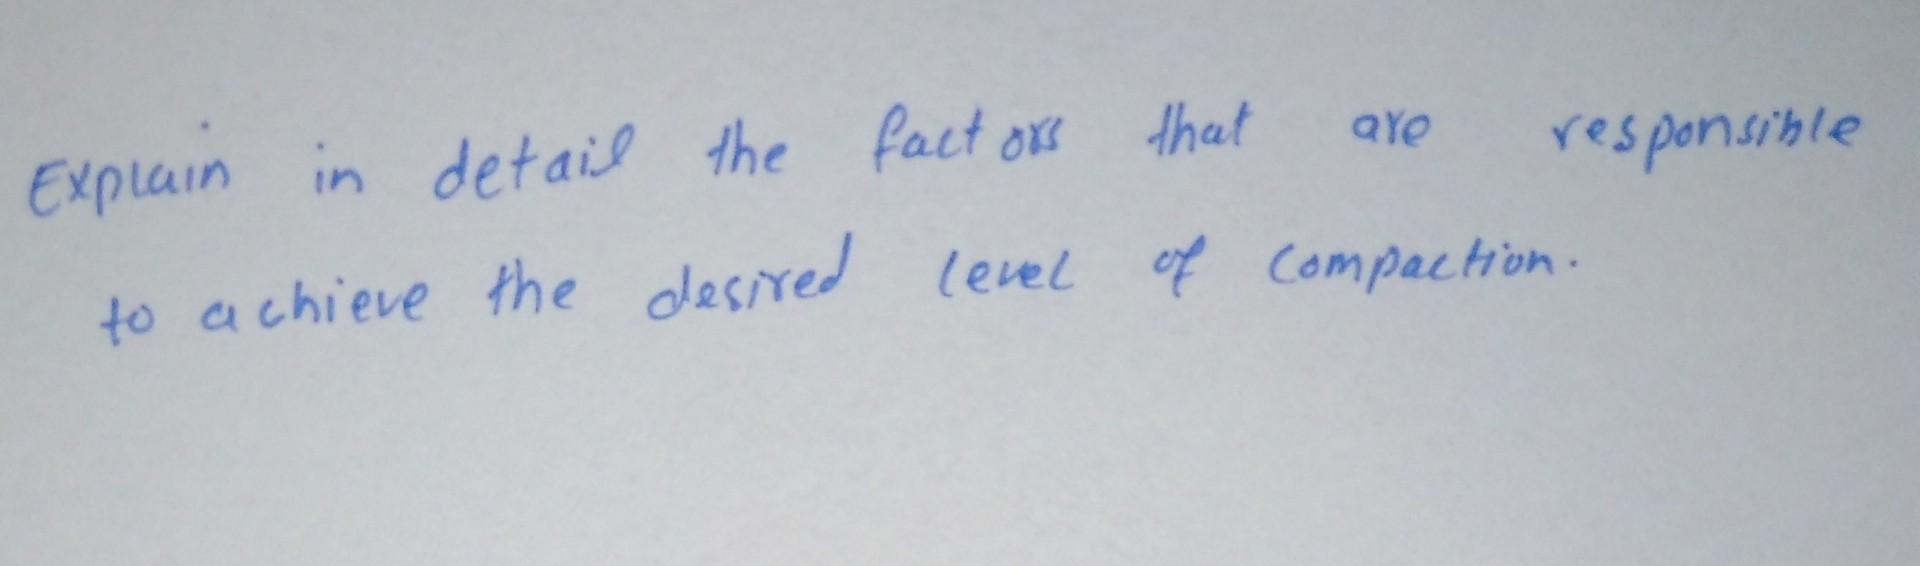 Explain in detail the factors that are responsible
to achieve the desired level of compaction.